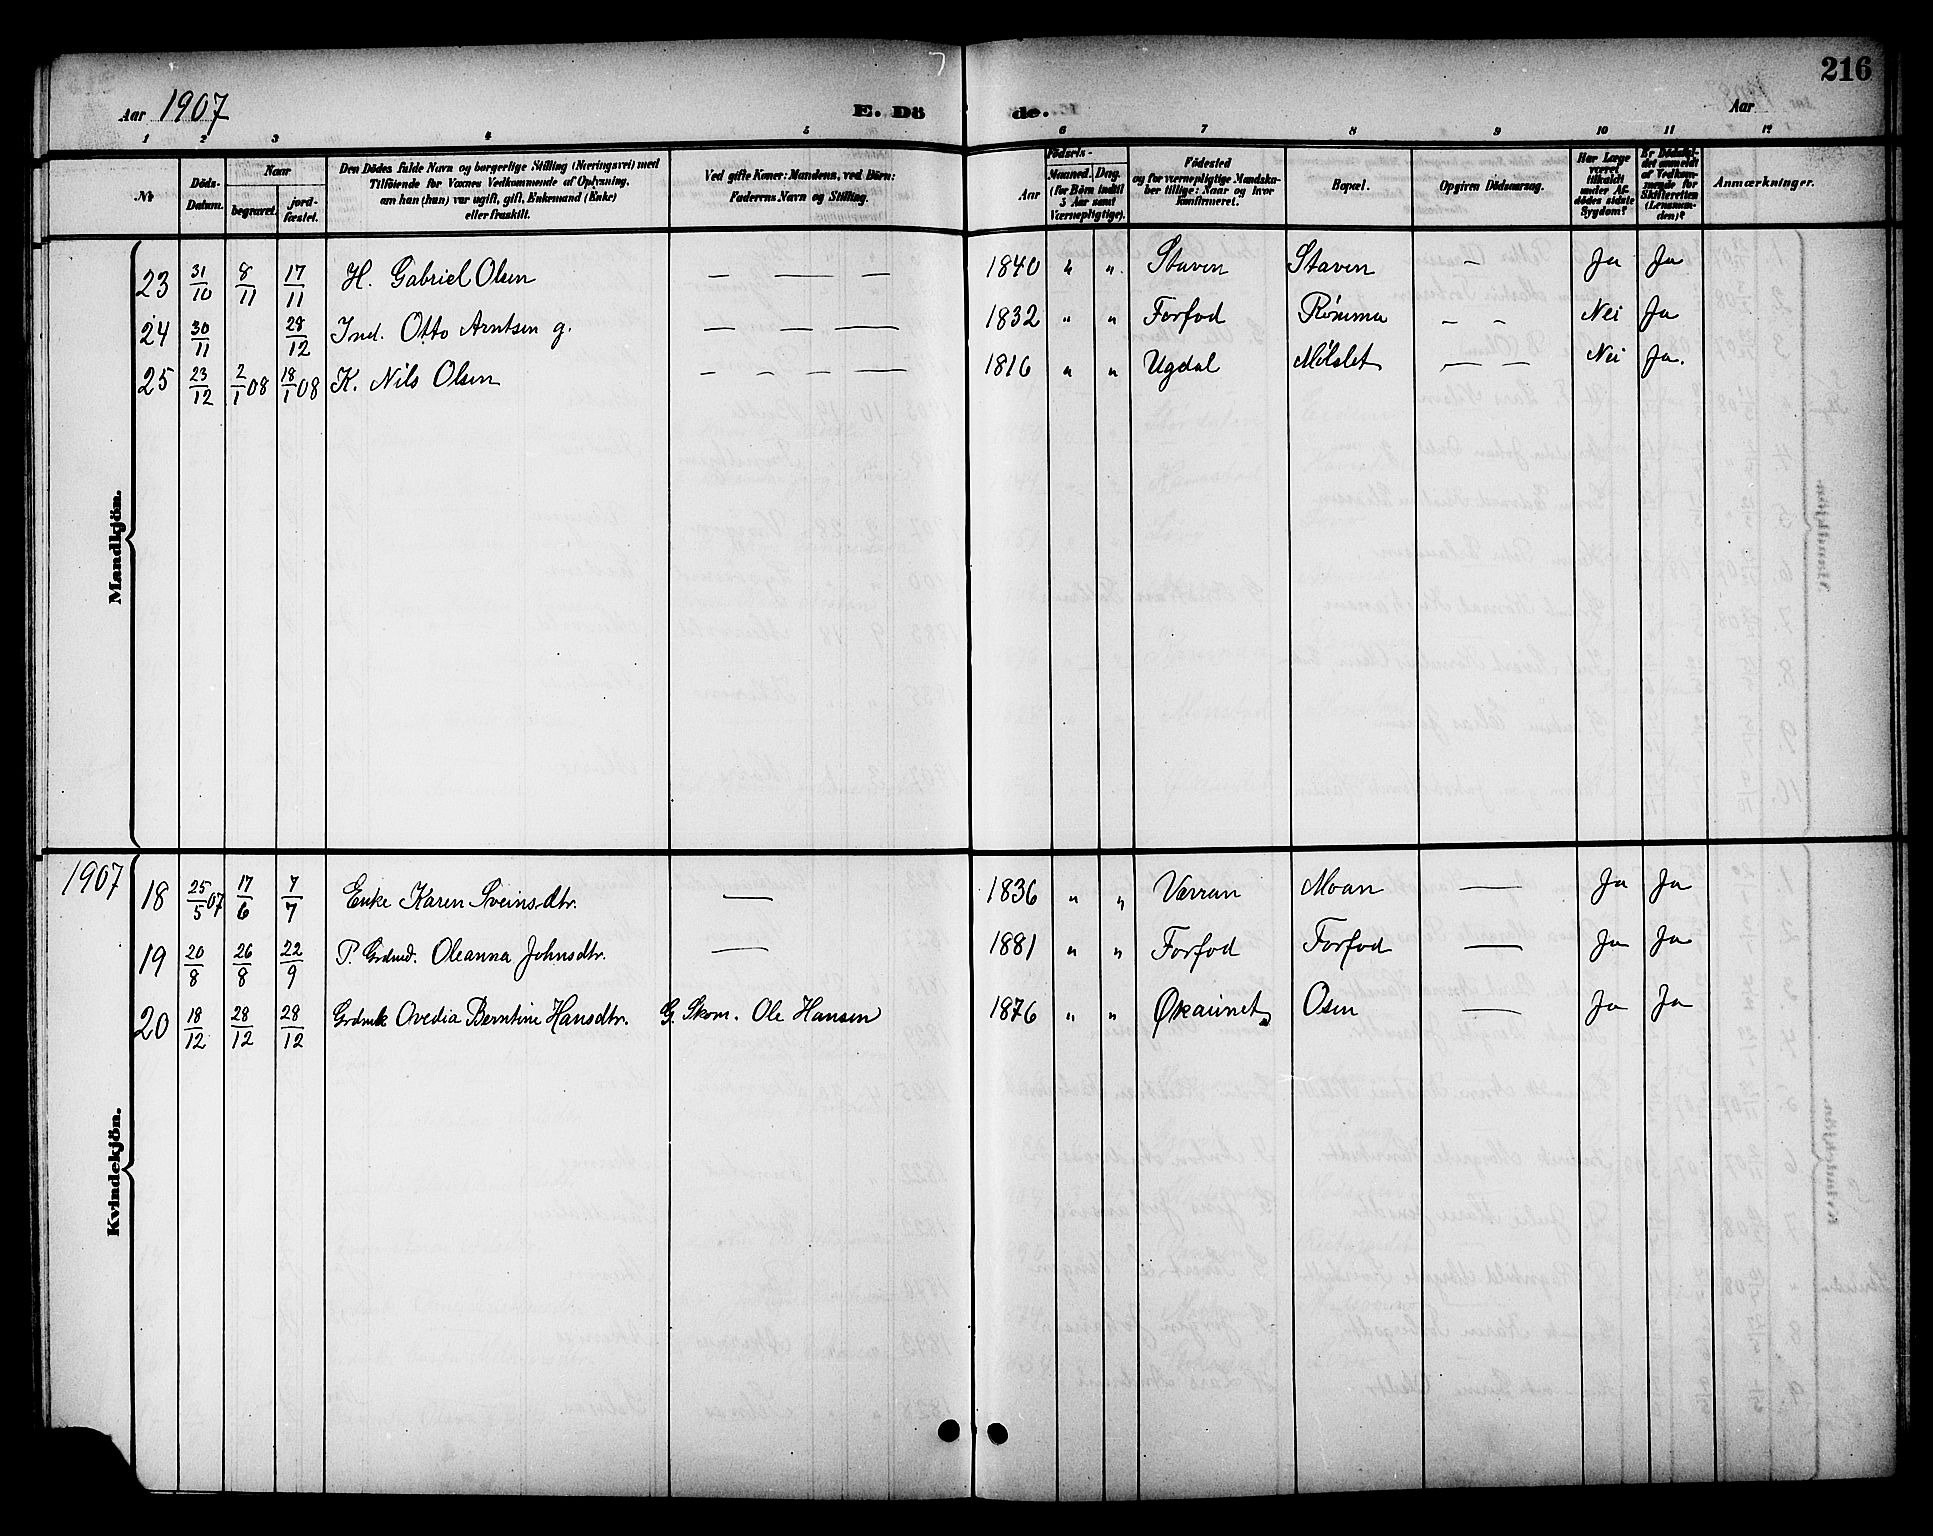 216
Aar 1907 E. Döde. Aar
1 2 3 4 5 6 7 8 9 10 11 12
No. Döds-Datum. Naar begravet. jordfæstet. Den Dödes fulde Navn og borgerlige Stilling (Næringsvei) med Tilföiende for Voxnes Vedkommende af Oplysning, om han (hun) var ugift, gift, Enkemand (Enke) eller fraskilt. Ved gifte Koner: Mandens, ved Börn: Faderens Navn og Stilling. Födsels- Aar Maaned. Dag. (for Börn indtil 5 Aar samt Værnepligtige). Födested og for værnepligtige Mandskaber tillige: Naar og hvor konfirmeret. Bopæl. Opgiven Dödsaarsag. Har Læge været tilkaldt under Afdödes sidste Sygdom? Er Dödsfaldet anmeldt af Vedkommende for Skifteretten (Lensmanden)? Anmærkninger.
Mandkjön.
23 31/10 8/11 17/11 H. Gabriel Olsen — — — 1840 " " Staven Staven — Ja Ja
24 30/11 28/12 Ind. Otto Arntsen g. — — — 1832 " " Forfod Rømma — — Nei Ja
25 23/12 2/1 08 18/1 08 K. Nils Olsen — — — — 1816 " " Ugdal — — Nei Ja.
Kvindekjön.
1907 18 25/5 07 17/6 7/7 Enke Karen Sveinsdtr. — 1836 " " Værran Moan — Ja Ja
19 20/8 26/8 22/9 P. Grdmd. Oleanna Johnsdtr. — 1881 " " Forfod Forfod — Ja Ja
20 18/12 28/12 28/12 Grdmk Ovedia Berntine Hansdtr. G. Skom. Ole Hansen 1876 " " Økaunet Osen — Ja Ja